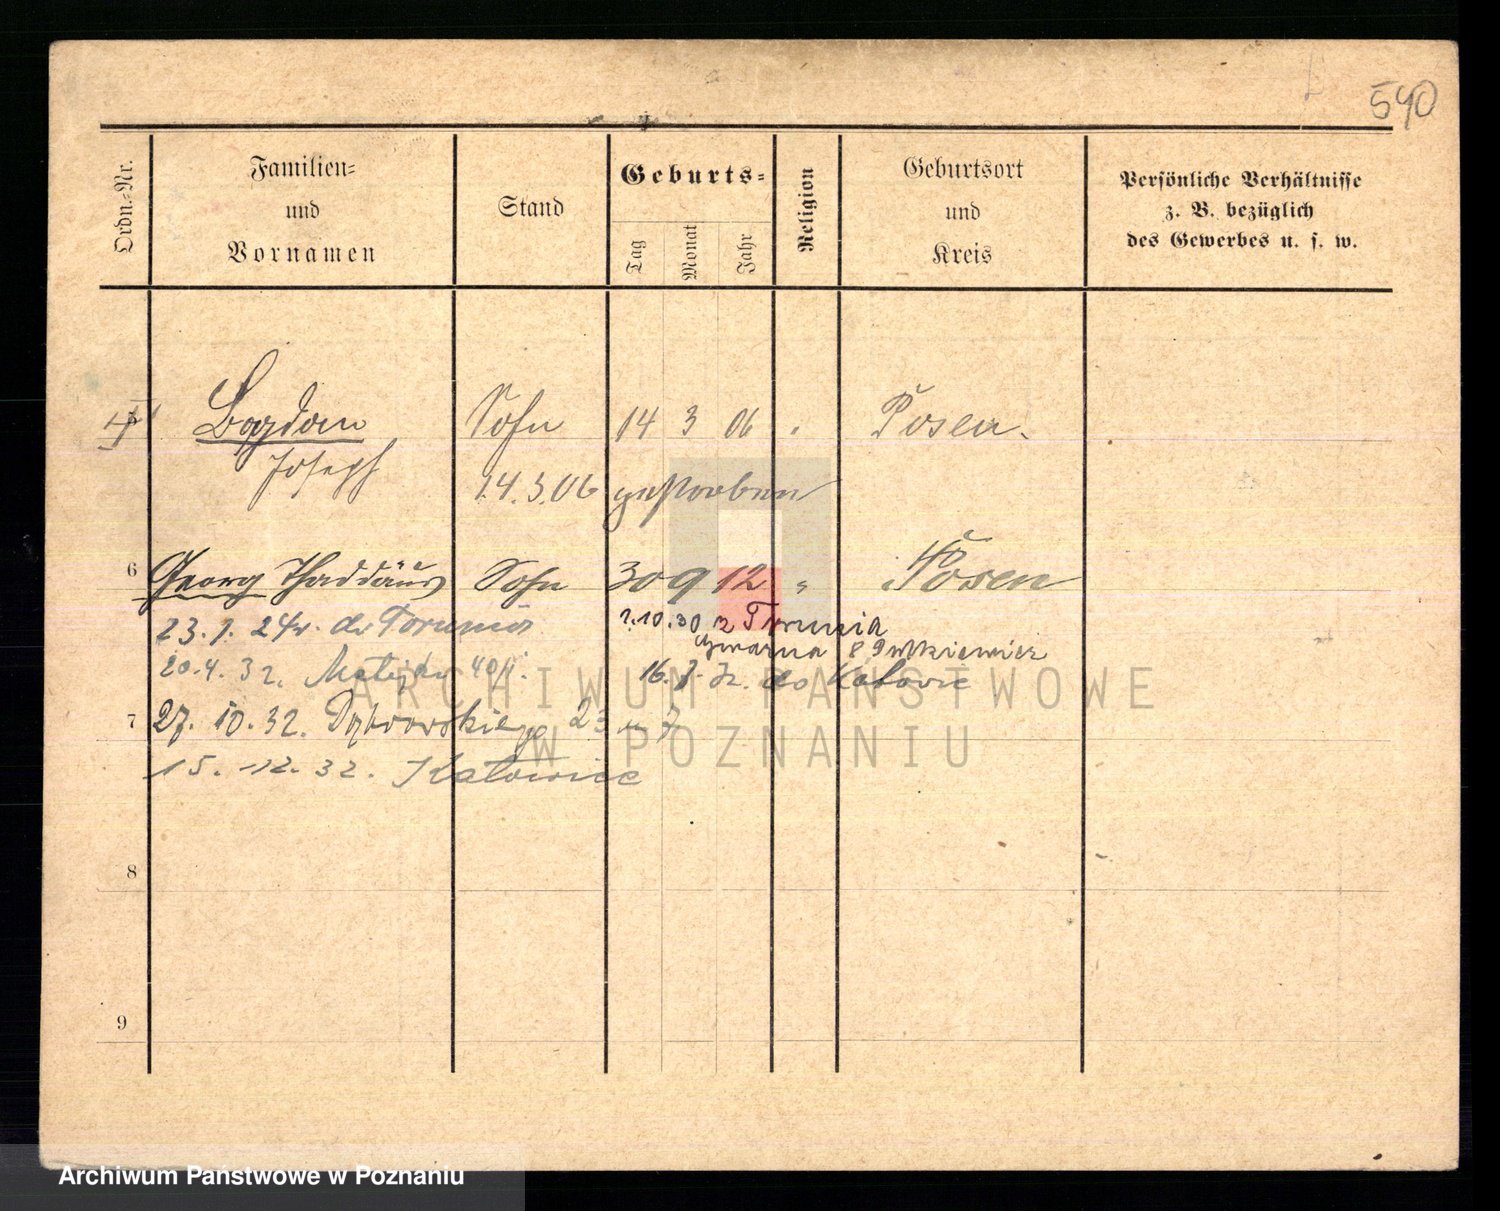 590
Ordn.-Nr.
Familien-
und
Vornamen
Stand
Geburts-
Tag
Monat
Jahr
Religion
Geburtsort
und
Kreis
Persönliche Verhältnisse
z. B. bezüglich
des Gewerbes u. s. w.
Bogdan Sohn 14 3 06 " Posen.
Joseph 14.3.06 gestorben
6 Georg Thaddäus Sohn 30 9 12 " Posen
24r. do Torunia
1.10.30 z Torunia
Gwarna 8
20.4.32. Matejki 40
16. 7. 32. do Katowic
7 27. 10. 32. Dąbrowskiego 23 m 7
15. 12. 32. Katowice
8
9
ARCHIWUM PAŃSTWOWE
W POZNANIU
Archiwum Państwowe w Poznaniu